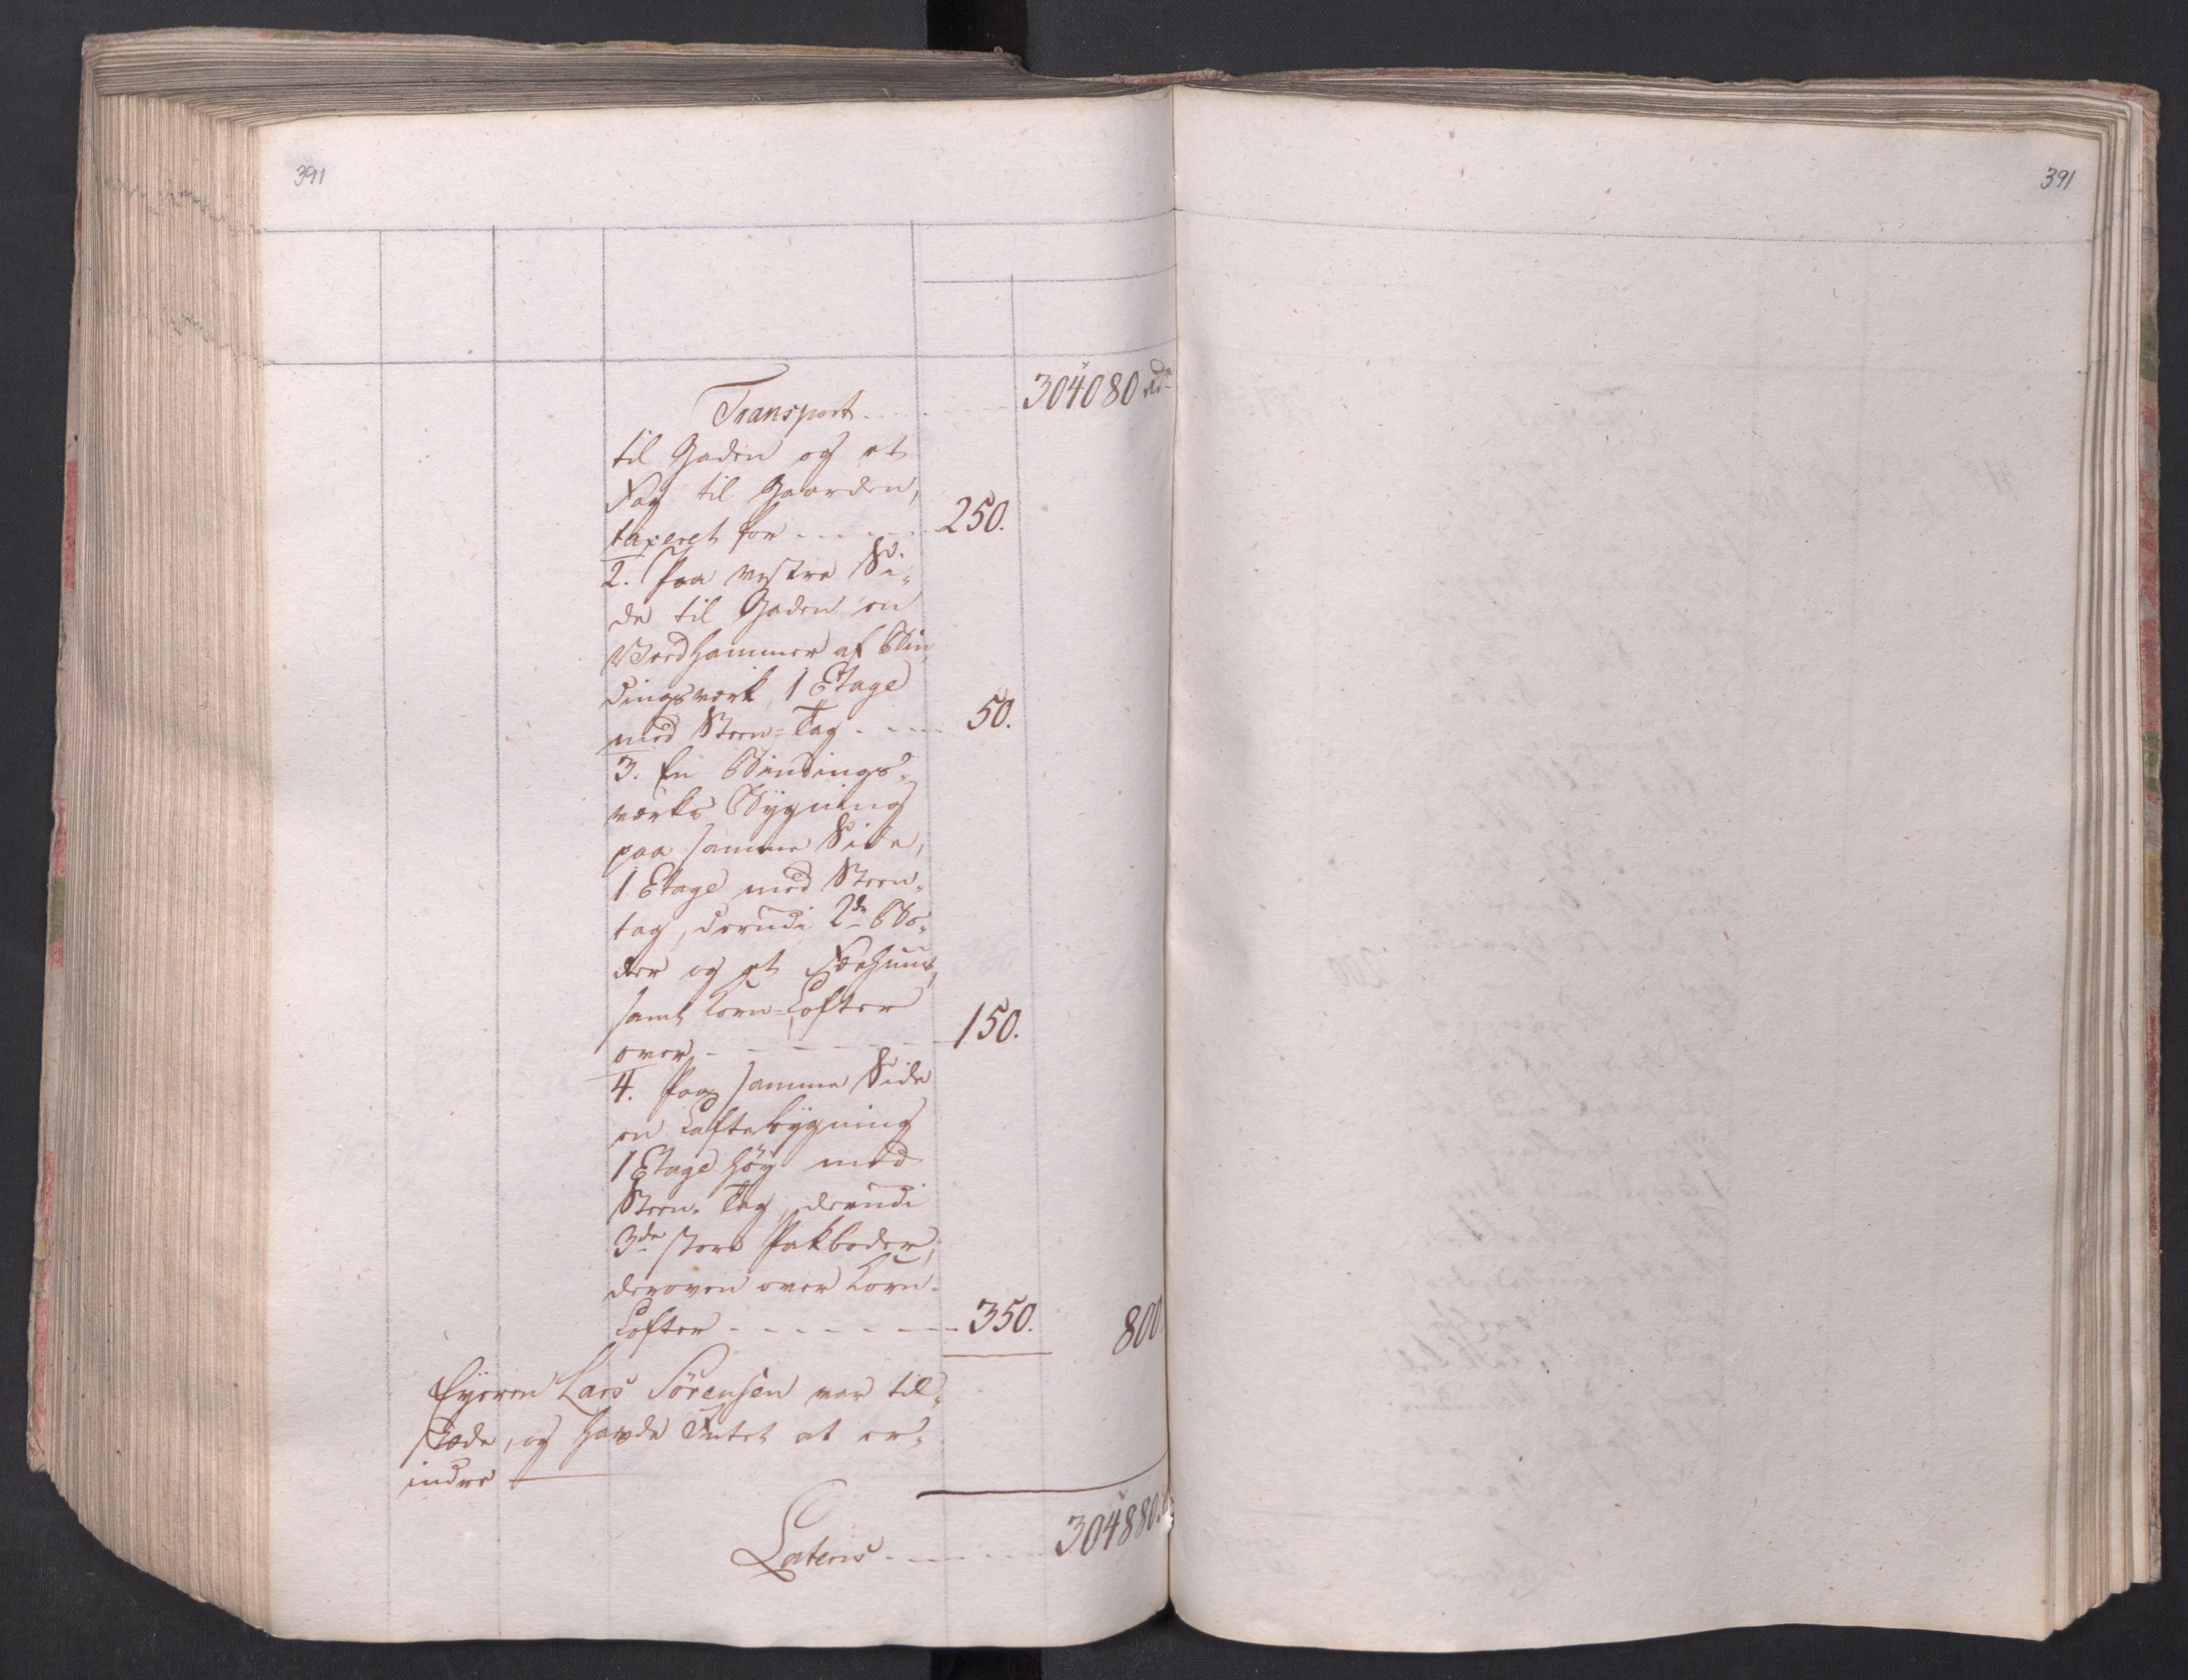 391
391
Transport - - - - 304080 rd
til Gaden og et
Fag til Gaarden,
taxeret for - - - - 250.
2. Paa vestre Si-
de til Gaden en
Vedhammer af Bin-
dingsværk, 1 Etage
med Steen-Tag - - - 50.
3. En Bindings-
værks Bygning
paa samme Side,
1 Etage med Steen-
tag, derudi 2de Bo-
der og et Fæehuus,
samt Korn-Lofter
over - - - - - 150.
4. Paa samme Side
en Laftebygning
1 Etage høy med
Steen-Tag, derudi
3de store Pakboder,
deroven over Korn-
Lofter - - - - - 350. 800.
Eyeren Lars Sörensen var til-
stæde, og havde Intet at er-
indre
Lateris - - - - 304880